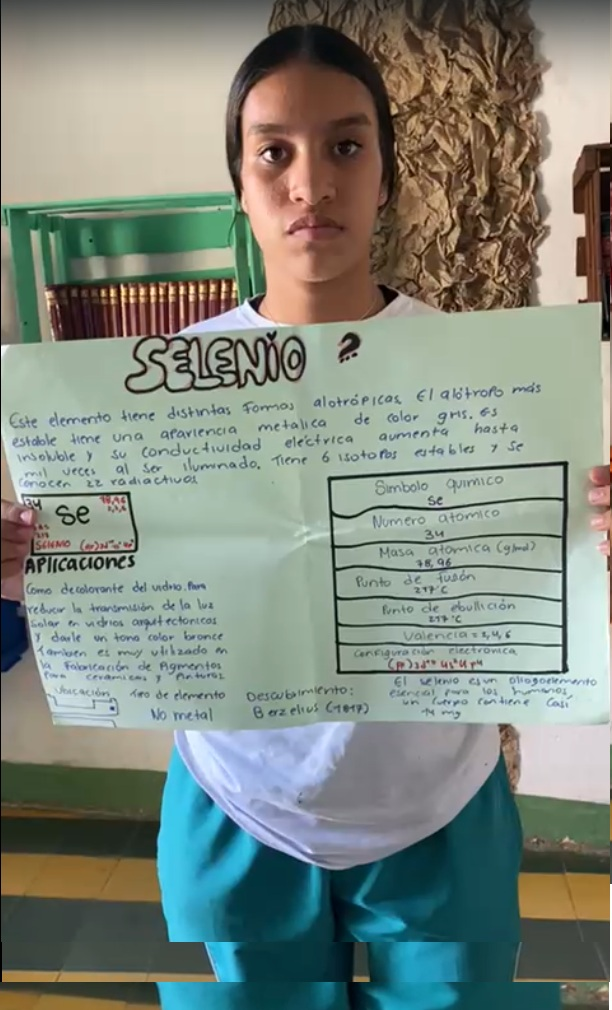 SELENIO ?
Este elemento tiene distintas Formas alotrópicas. El alótropo más
estable tiene una apariencia metalica de color gris. Es
insoluble y su conductividad eléctrica aumenta hasta
mil veces al ser iluminado. Tiene 6 isotopos estables y se
conocen 22 radiactivos
34
78,96
2,4,6
Se
SELENIO
APlicaciones
Como decolorante del vidrio. Para
reducir la transmisión de la luz
Solar en vidrios arquitectonicos
y darle un tono color bronce
Tambien es muy utilizado en
la Fabricación de Pigmentos
Para ceramicas y Pinturas
Ubicación
Tipo de elemento
No metal
Descubimiento:
Berzelius (1817)
Simbolo químico
Se
Numero atómico
34
Masa atomica (g/mol)
78,96
Punto de fusión
217°C
Punto de ebullición
217°C
Valencia = 2,4,6
Configuración electronica
El selenio es un oligoelemento
esencial para los humanos,
un cuerpo contiene Casi
14 mg